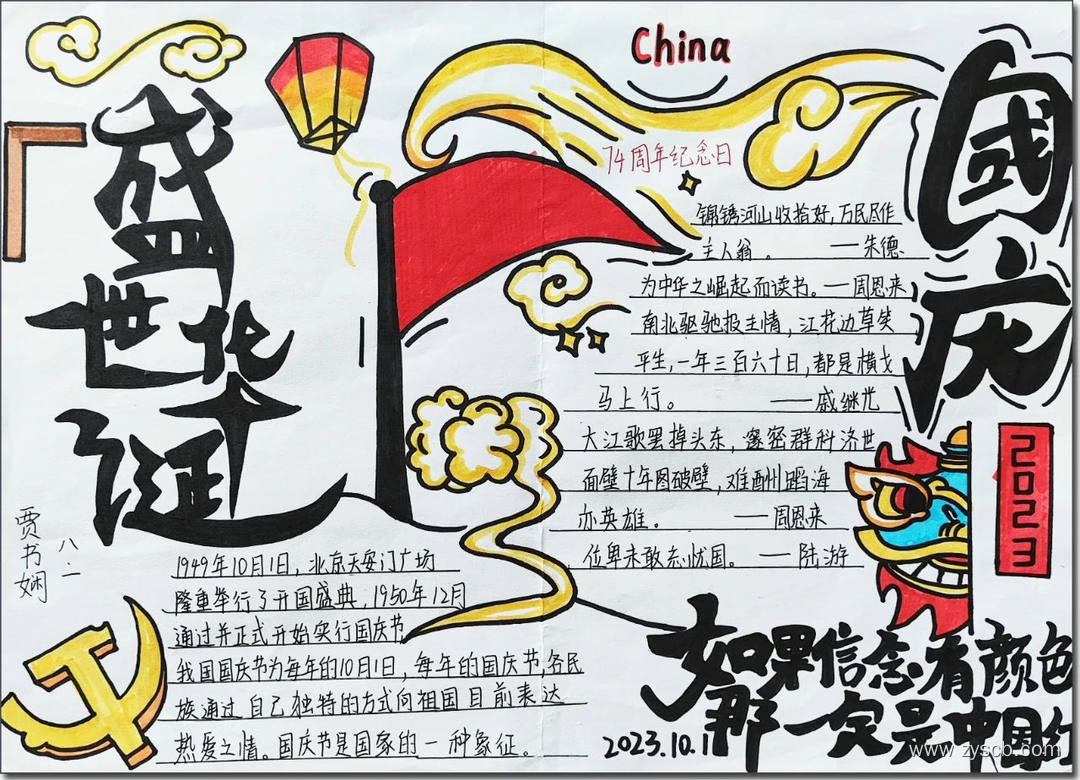 China
74周年纪念日
盛世华诞
國庆
2023
锦锈河山收拾好,万民尽作
主人翁。——朱德
为中华之崛起而读书。——周恩来
南北驱驰报主情,江花边草笑
平生,一年三百六十日,都是横戈
马上行。——戚继光
大江歌罢掉头东,邃密群科济世
面壁十年图破壁,难酬蹈海
亦英雄。——周恩来
位卑未敢忘忧国。——陆游
贾书娴
八.二
1949年10月1日,北京天安门广场
隆重举行了开国盛典,1950年12月
通过并正式开始实行国庆节
我国国庆节为每年的10月1日,每年的国庆节,各民
族通过自己独特的方式向祖国目前表达
热爱之情。国庆节是国家的一种象征。
如果信念有颜色
那一定是中国红
2023.10.1
www.zyscb.com